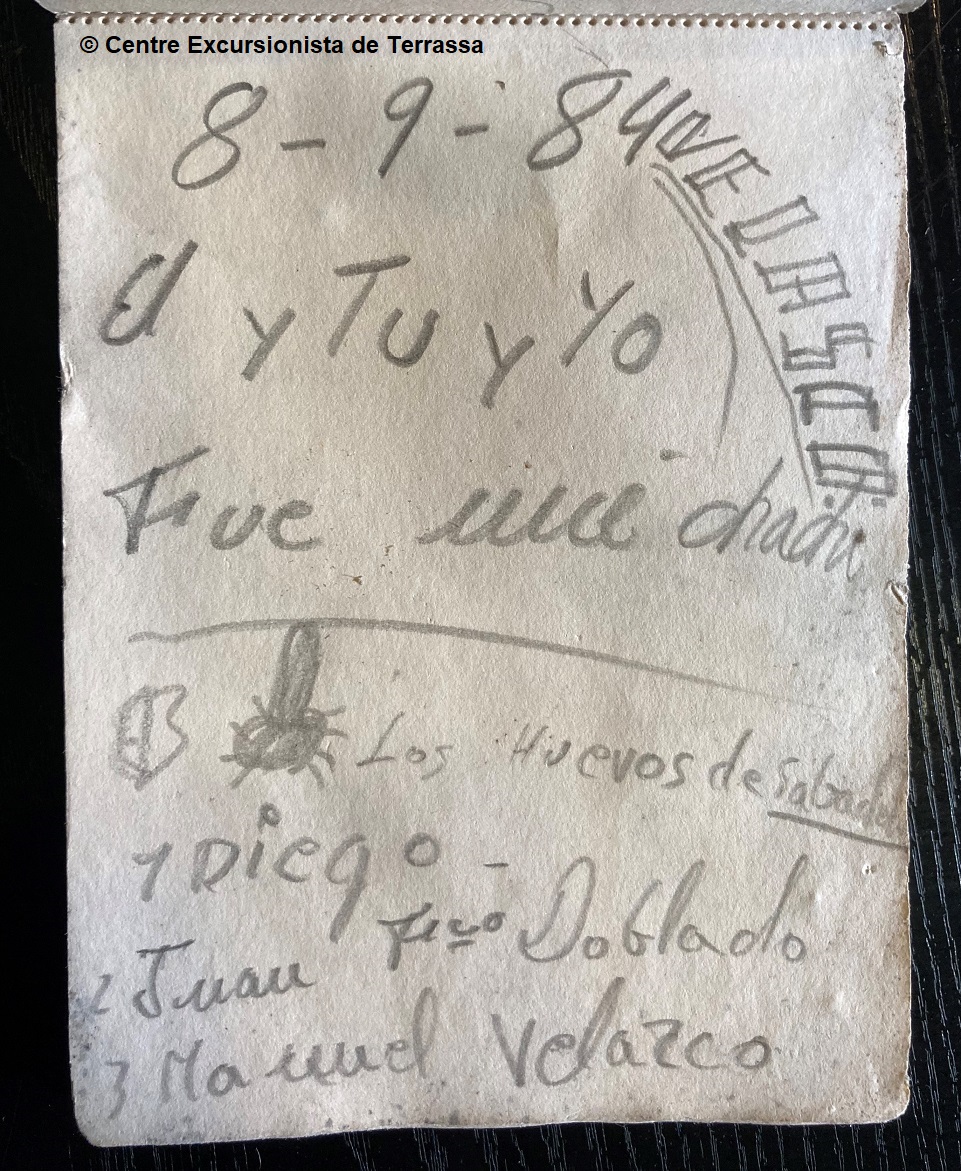 © Centre Excursionista de Terrassa
8-9-84
El y Tu y Yo
Fue
Los Huevos de Sabadel
1 Diego -
2 Juan Fco Doblado
3 Manuel Velazco